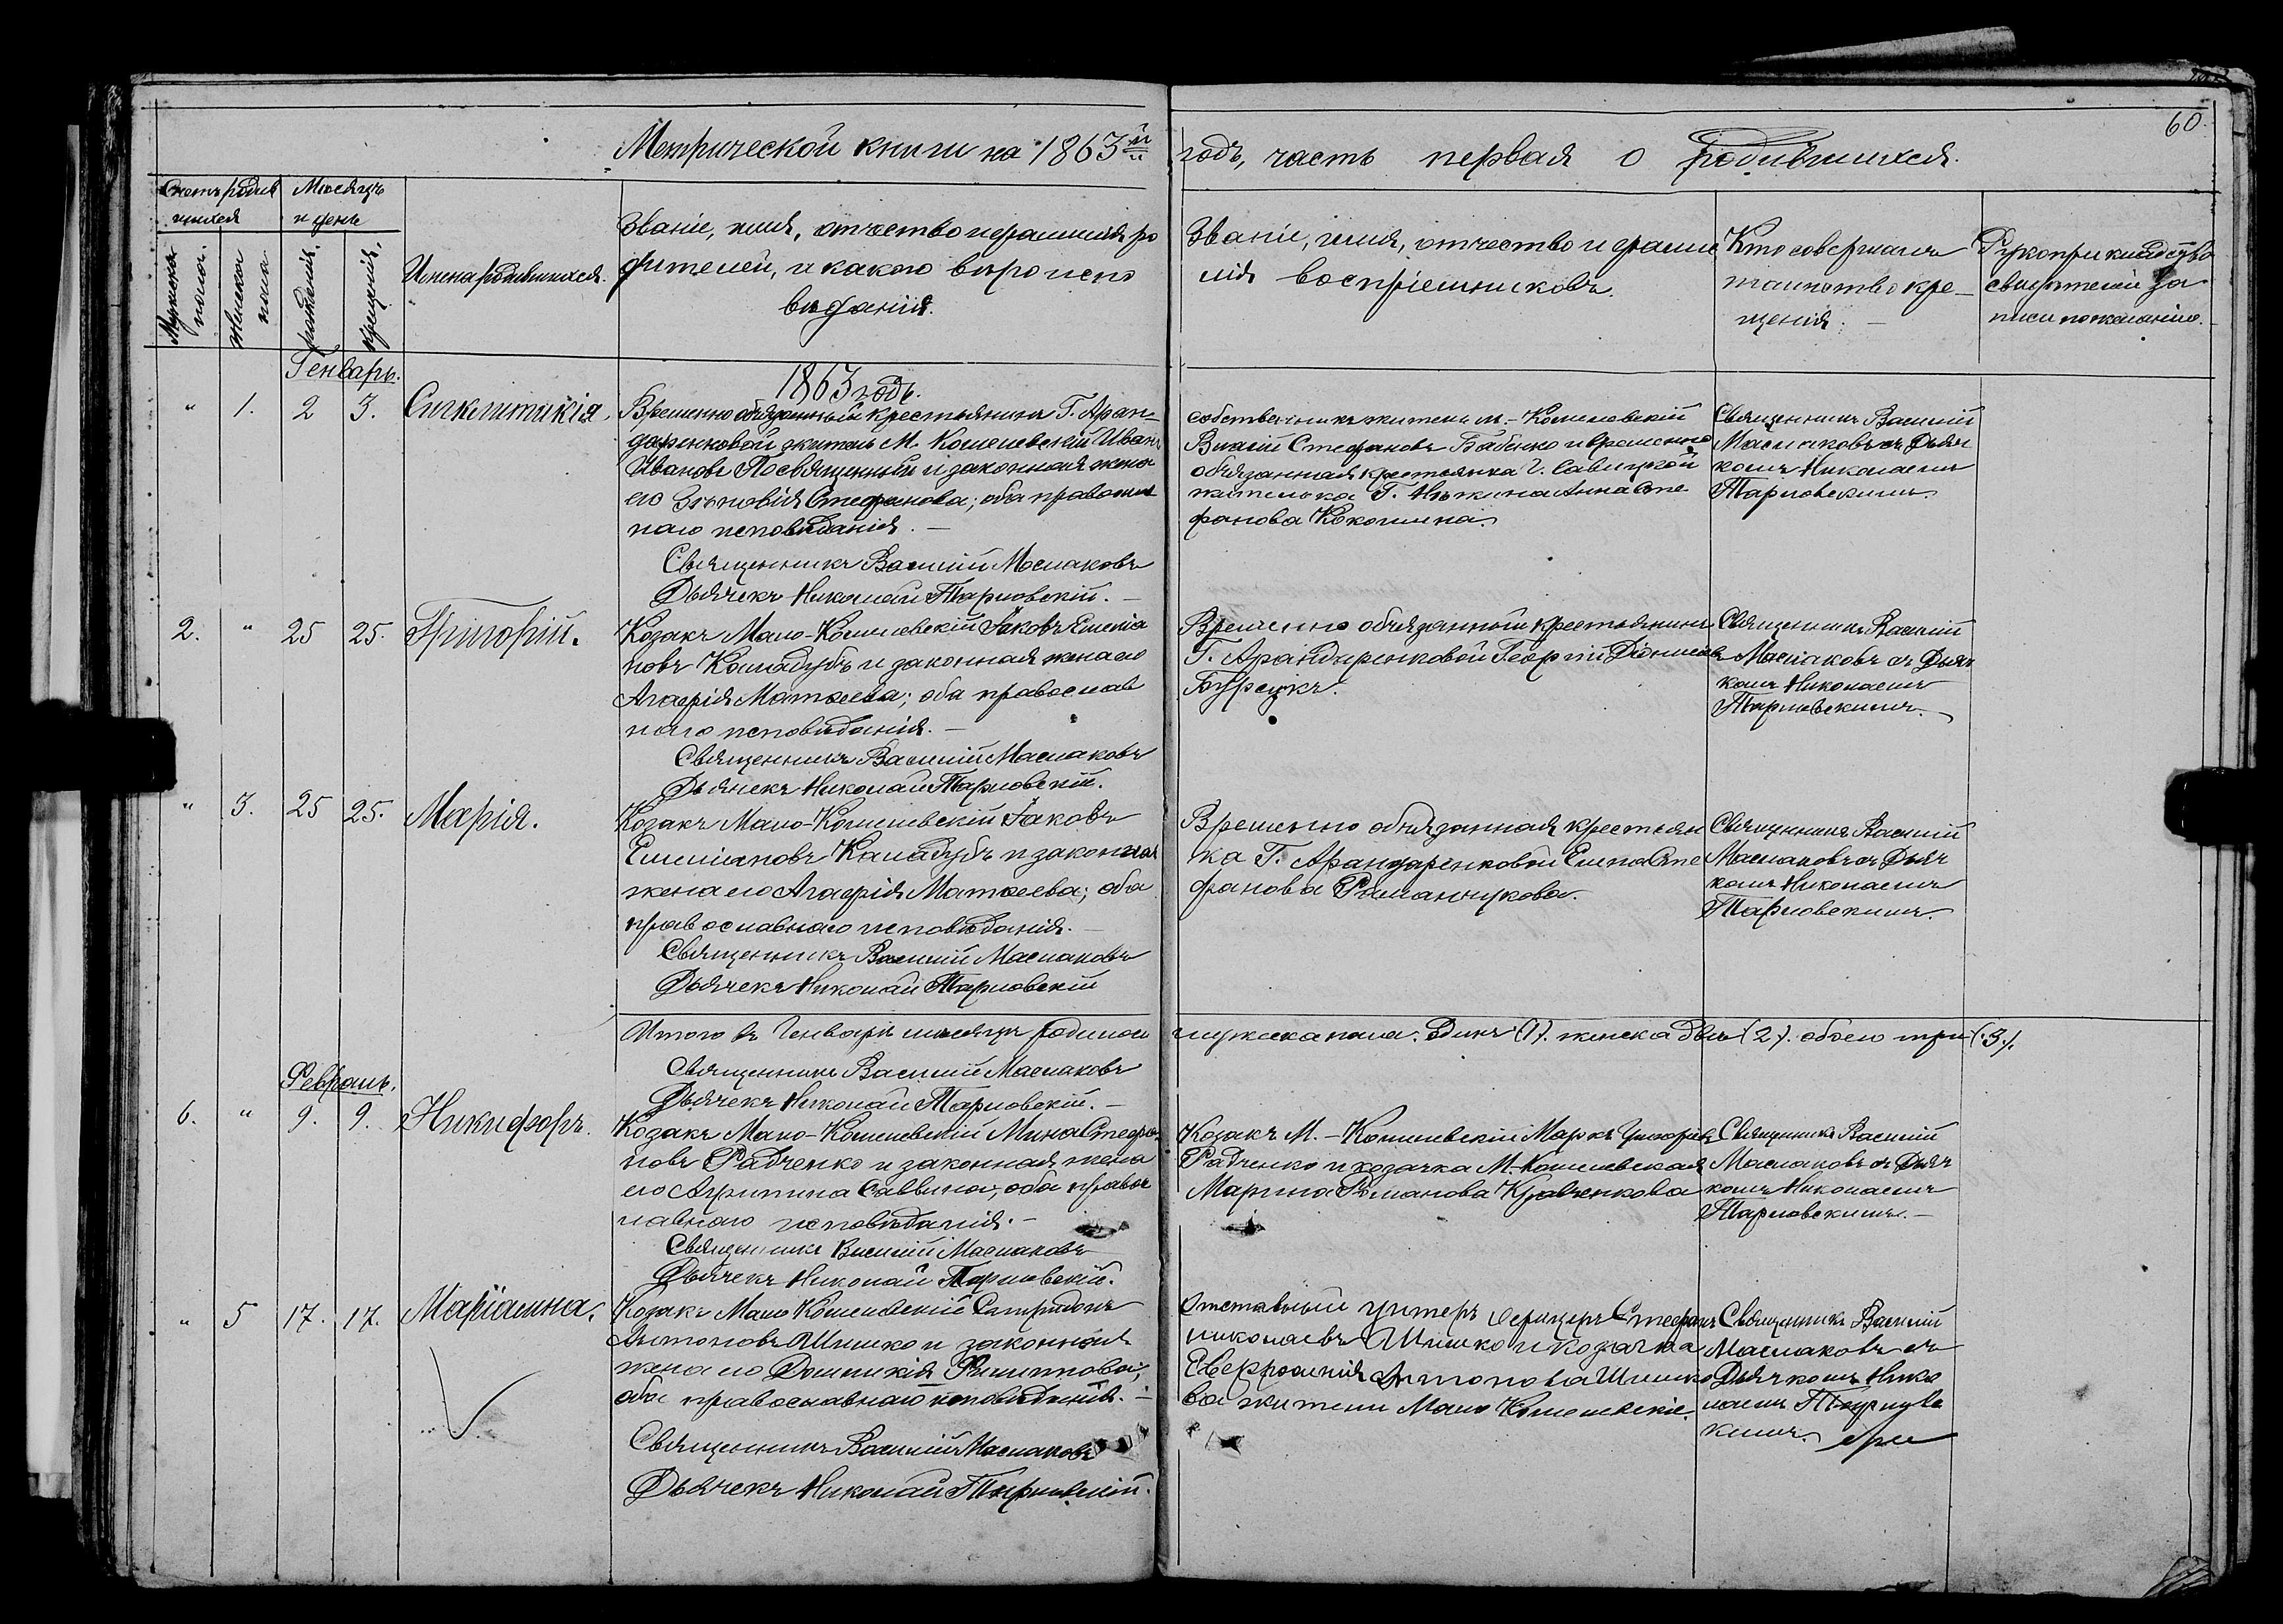 60.
Метрической книги на 1863й годъ, часть первая о родившихся.
Счетъ родив
шихся
Мужеска
пола.
Женска
пола
Мѣсяцъ
и день
рожденія.
крещенія.
Имена родившихся.
Званіе, имя, отчество и фамилія ро
дителей, и какого вѣроиспо
вѣданія.
Званіе, имя, отчество и фами
лія воспріемниковъ.
Кто совершалъ
таинство кре-
щенія.
Рукоприкладство
свидѣтелей за
писи по желанію.
Генварь.
1863 годъ.
" 1. 2 3. Сигклитикія.
Временно обязанный крестьянинъ Г. Аран-
даренковой житель М. Кошелевскій Иванъ
Ивановъ Посвященный и законная жена
его Зѣновія Стефанова; оба православ
наго исповѣданія. —
Священникъ Василій Маслаковъ
Дьячекъ Николай Тарловскій. —
собственникъ житель М.-Кошелевскій
Василій Стефановъ Бабенко и временно
обязанная крестьянка Г. Савицкой
жителька Г. Нѣжина Анна Сте
фанова Кокошина.
Священникъ Василій
Маслаковъ съ Дьяч
комъ Николаемъ
Тарловскимъ.
2. " 25 25. Григорій.
Козакъ Мало-Кошелевскій Іаковъ Емелiа
новъ Каладубъ и законная жена его
Агафія Матѳеева; оба православ
наго исповѣданія. —
Священникъ Василій Маслаковъ
Дьячекъ Николай Тарловскій.
Временно обязанный крестьянинъ
Г. Арандаренковой Георгій Діонисіевъ
Бурсукъ.
Священникъ Василій
Маслаковъ съ Дьяч
комъ Николаемъ
Тарловскимъ.
" 3. 25 25. Марія.
Козакъ Мало-Кошелевскій Іаковъ
Емеліановъ Каладубъ и законная
жена его Агафія Матѳеева; оба
православнаго исповѣданія. —
Священникъ Василій Маслаковъ
Дьячекъ Николай Тарловскій
Временно обязанная крестьян
ка Г. Арандаренковой Елена Сте
фанова
Священникъ Василій
Маслаковъ съ Дьяч
комъ Николаемъ
Тарловскимъ.
Итого въ Генварѣ мѣсяцѣ родилось мужеска пола. Одинъ (1). женска двѣ (2). обоего три (3).
Священникъ Василій Маслаковъ
Дьячекъ Николай Тарловскій. —
Февраль.
6. " 9. 9. Никифоръ.
Козакъ Мало-Кошелевскій Мина Стефа
новъ Радченко и законная жена
его Агрипина Саввина; оба правос
лавнаго исповѣданія. —
Священникъ Василій Маслаковъ
Дьячекъ Николай Тарловскій.
Козакъ М.-Кошелевскій Маркъ Григоріевъ
Радченко и козачка М.-Кошелевская
Марина Романова Кравченкова
Священникъ Василій
Маслаковъ съ Дьяч
комъ Николаемъ
Тарловскимъ. —
" 5 17. 17. Маріамна.
Козакъ Мало Кошелевскій Спиридонъ
Антоновъ Шишко и законная
жена его Домникія Филиппова;
оба православнаго исповѣданія. —
Священникъ Василій Маслаковъ
Дьячекъ Николай Тарловскій.
Отставный унтеръ офицеръ Стефанъ
Николаевъ Шишко и козачка
Евфросинія Антонова Шишко
ва жители Мало Кошелевскіе.
Священникъ Василій
Маслаковъ съ
Дьячкомъ Нико
лаемъ Тарловс
кимъ.